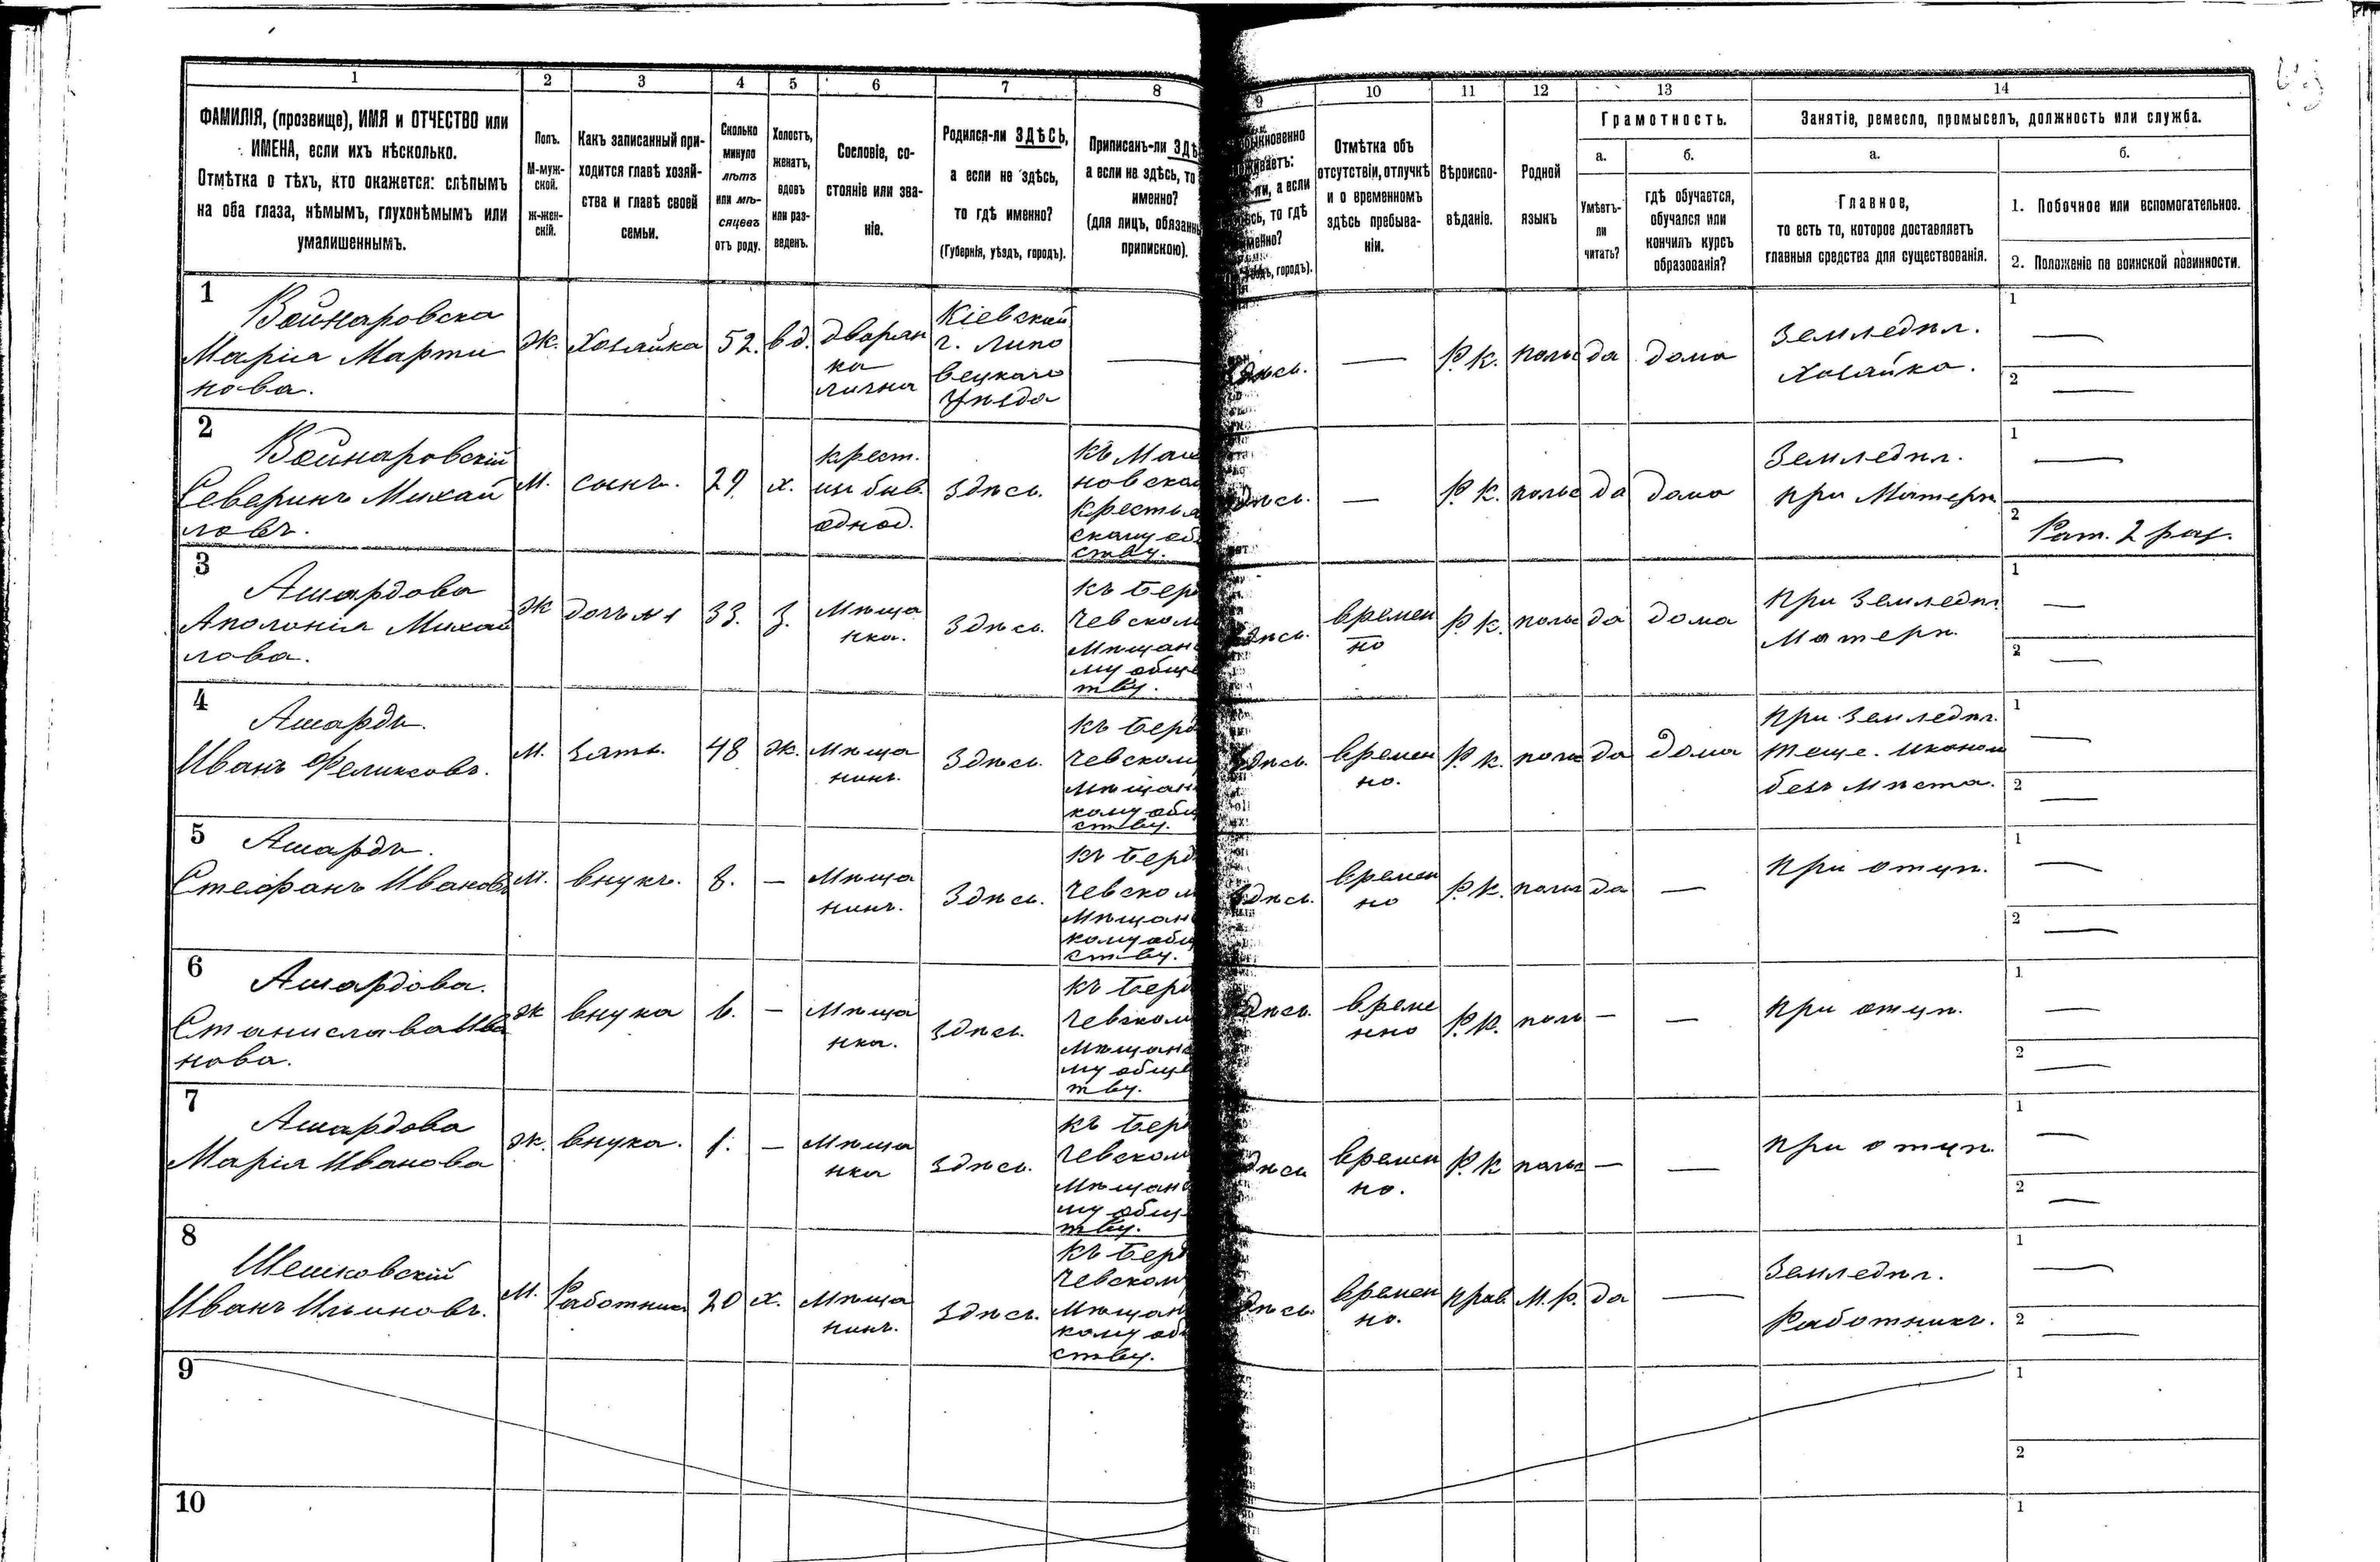 1 2 3 4 5 6 7 8 9 10 11 12 13 14
ФАМИЛІЯ, (прозвище), ИМЯ и ОТЧЕСТВО или
ИМЕНА, если ихъ нѣсколько.
Отмѣтка о тѣхъ, кто окажется: слѣпымъ
на оба глаза, нѣмымъ, глухонѣмымъ или
умалишеннымъ.
Полъ.
М-муж-
ской.
ж-жен-
скій.
Какъ записанный при-
ходится главѣ хозяй-
ства и главѣ своей
семьи.
Сколько
минуло
лѣтъ
или мѣ-
сяцевъ
отъ роду.
Холостъ,
женатъ,
вдовъ
или раз-
веденъ.
Сословіе, со-
стояніе или зва-
ніе.
Родился-ли ЗДѢСЬ,
а если не здѣсь,
то гдѣ именно?
(Губернія, уѣздъ, городъ).
Приписанъ-ли ЗДѢ
а если не здѣсь, то
именно?
(для лицъ, обязанн
припискою).
а если
то гдѣ
городъ).
Отмѣтка объ
отсутствіи, отлучкѣ
и о временномъ
здѣсь пребыва-
ніи.
Вѣроиспо-
вѣданіе.
Родной
языкъ
Грамотность.
а.
Умѣетъ-
ли
читать?
б.
гдѣ обучается,
обучался или
кончилъ курсъ
образованія?
Занятіе, ремесло, промыселъ, должность или служба.
а.
Главное,
то есть то, которое доставляетъ
главныя средства для существованія.
б.
1. Побочное или вспомогательное.
2. Положеніе по воинской повинности.
1
Войнаровска
Марія Марти
нова.
ж.
Хозяйка
52.
вд.
дворян
ка
лична
Кіевской
г. Липо
вецкаго
уѣзда
—
здѣсь.
—
Р. к.
поль
да
дома
Земледѣл.
Хозяйка.
1
—
2
—
2
Войнаровскій
Северинъ Михай
ловъ.
М.
сынъ.
29.
х.
крест.
изъ быв.
однод.
Здѣсь.
новско
скому об
ству.
—
Р. к.
польс
да
дома
Земледѣл.
при Матери
1
—
2
Рат. 2 раз.
3
Ашардова
Аполонія Михай
лова.
ж
дочь №1
33.
З.
Мѣща
нка.
Здѣсь.
къ Берд
чевском
Мѣщанс
му обще
тву.
времен
но
Р. к.
поль
да
дома
при Земледѣл.
Матери.
1
—
2
—
4
Ашардъ.
Иванъ Феликсовъ.
М.
Зять.
48
ж.
Мѣща
нинъ.
Здѣсь.
къ Берд
чевском
мѣщанс
кому общ
ству.
Здѣсь.
времен
но.
Р. к.
поль
да
дома
при Земледѣл.
теще. иконом
безъ мѣста.
1
—
2
—
5
Ашардъ.
Стефанъ Ивановъ
М.
внукъ.
8.
—
Мѣща
нинъ.
Здѣсь.
къ Берд
чевском
Мѣщанс
кому общ
ству.
Здѣсь.
времен
но
Р. к.
поль
да
—
при отцѣ.
1
—
2
—
6
Ашардова.
Станислава Ива
нова.
ж
внука
6.
—
Мѣща
нка.
Здѣсь.
къ Берд
чевском
Мѣщанс
му общес
тву.
време
нно
Р. к.
поль
—
—
при отцѣ.
1
—
2
—
7
Ашардова
Марія Иванова
ж.
внука.
1.
—
Мѣща
нка
Здѣсь.
къ Берд
чевском
Мѣщанс
му общ
тву.
времен
но.
Р. к
поль
—
—
при отцѣ.
1
—
2
—
8
Шешковскій
Иванъ
М.
Работникъ
20
х.
Мѣща
нинъ.
Здѣсь.
къ Берд
чевском
Мѣщанс
кому об
ству.
времен
но.
прав.
М. р.
да
—
Земледѣл.
Работникъ.
1
—
2
—
9
1
2
10
1